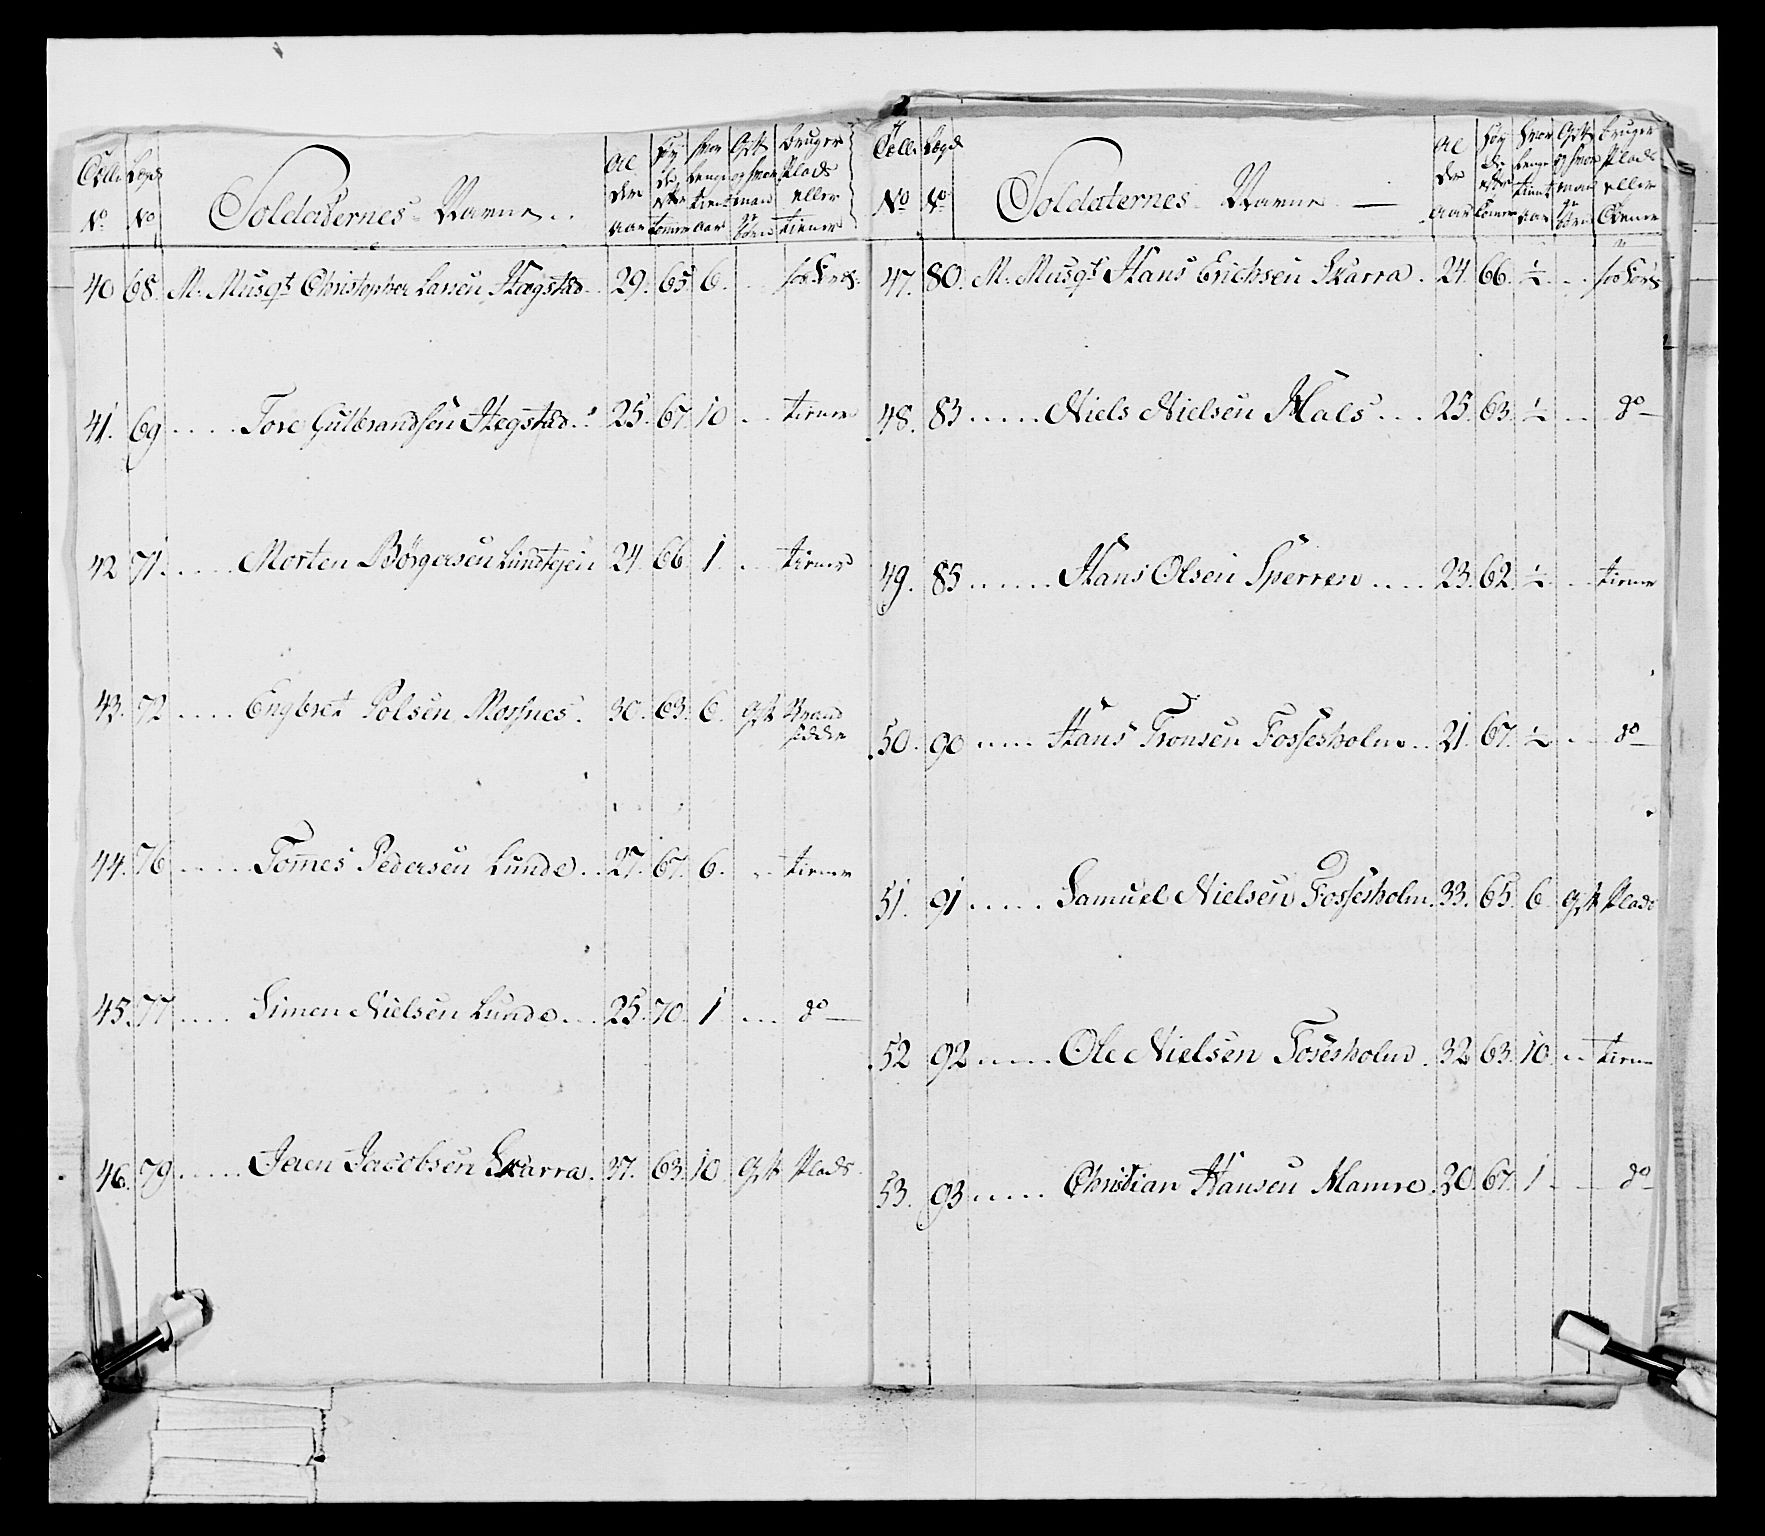 Tælle No | Lægds No | Soldaternes Navne | Al der Aar | Høy de efter Tomer | hvor lenge tient Aar | Gift og hvor man ge Børn | bruger Plads eller tiener
40 68. N. Musqt Christopher Larsen Hægstad 29. 65 6.
41. 69 .... Tore Gulbrandsen Hegstad. 25. 67. 10 .. tiener
42 71. .... Morten Børgersen Lundtejen 24 66 1. .. tiener
43. 72 .... Engbret Polsen Mossnes. 30. 63. 6. gift Brand sidder
44. 76 .... Tomes Pedersen Lunde. 27. 67. 6. .. tiener
45. 77 .... Simen Nielsen Lunde ... 25. 70. 1 ... do
46. 79 .... Jven Jacobsen Skarra. 37. 63. 10. gift Plads.
Tælle No | Lægds No | Soldaternes Navne | Al der Aar | Høy de efter Tommer | hvor lenge tient Aar | Gift og hvor man ge Børn | bruger Plads eller Tiener
47. 80. N. Musqt Hans Erichsen Skarra. 24. 66. ½ ..
48. 83 ..... Niels Nielsen Hals ... 25. 63. ½ .. do
49. 85 ...... Hans Olsen Sperren .... 23. 62. ½ .. tiener
50. 90 ..... Hans Tronsen Fossesholm .. 21. 67. ½ .. do
51. 91 ..... Samuel Nielsen Fossesholm. 33. 65. 6. gift Plads
52 92 ..... Ole Nielsen Fosesholm. 32 63. 10. .. tiener
53. 93 ..... Christian Hansen Mamre. 20. 67. 1 .. do